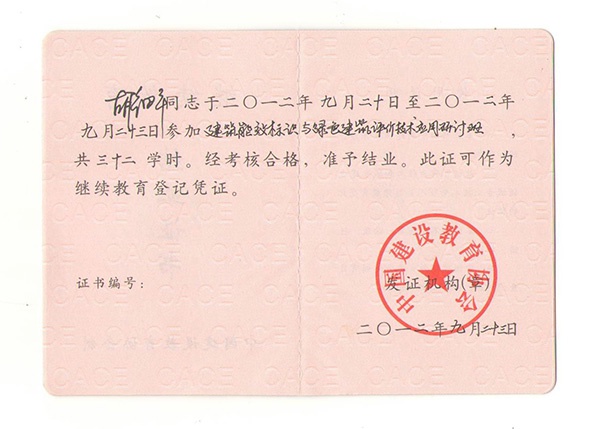 胡细年同志于二〇一二年九月二十日至二〇一二年
九月二十三日参加建筑能效标识与绿色建筑评价技术应用研讨班，
共三十二学时。经考核合格，准予结业。此证可作为
继续教育登记凭证。
中国建设教育协会
证书编号：
发证机构(章)
二〇一二年九月二十三日